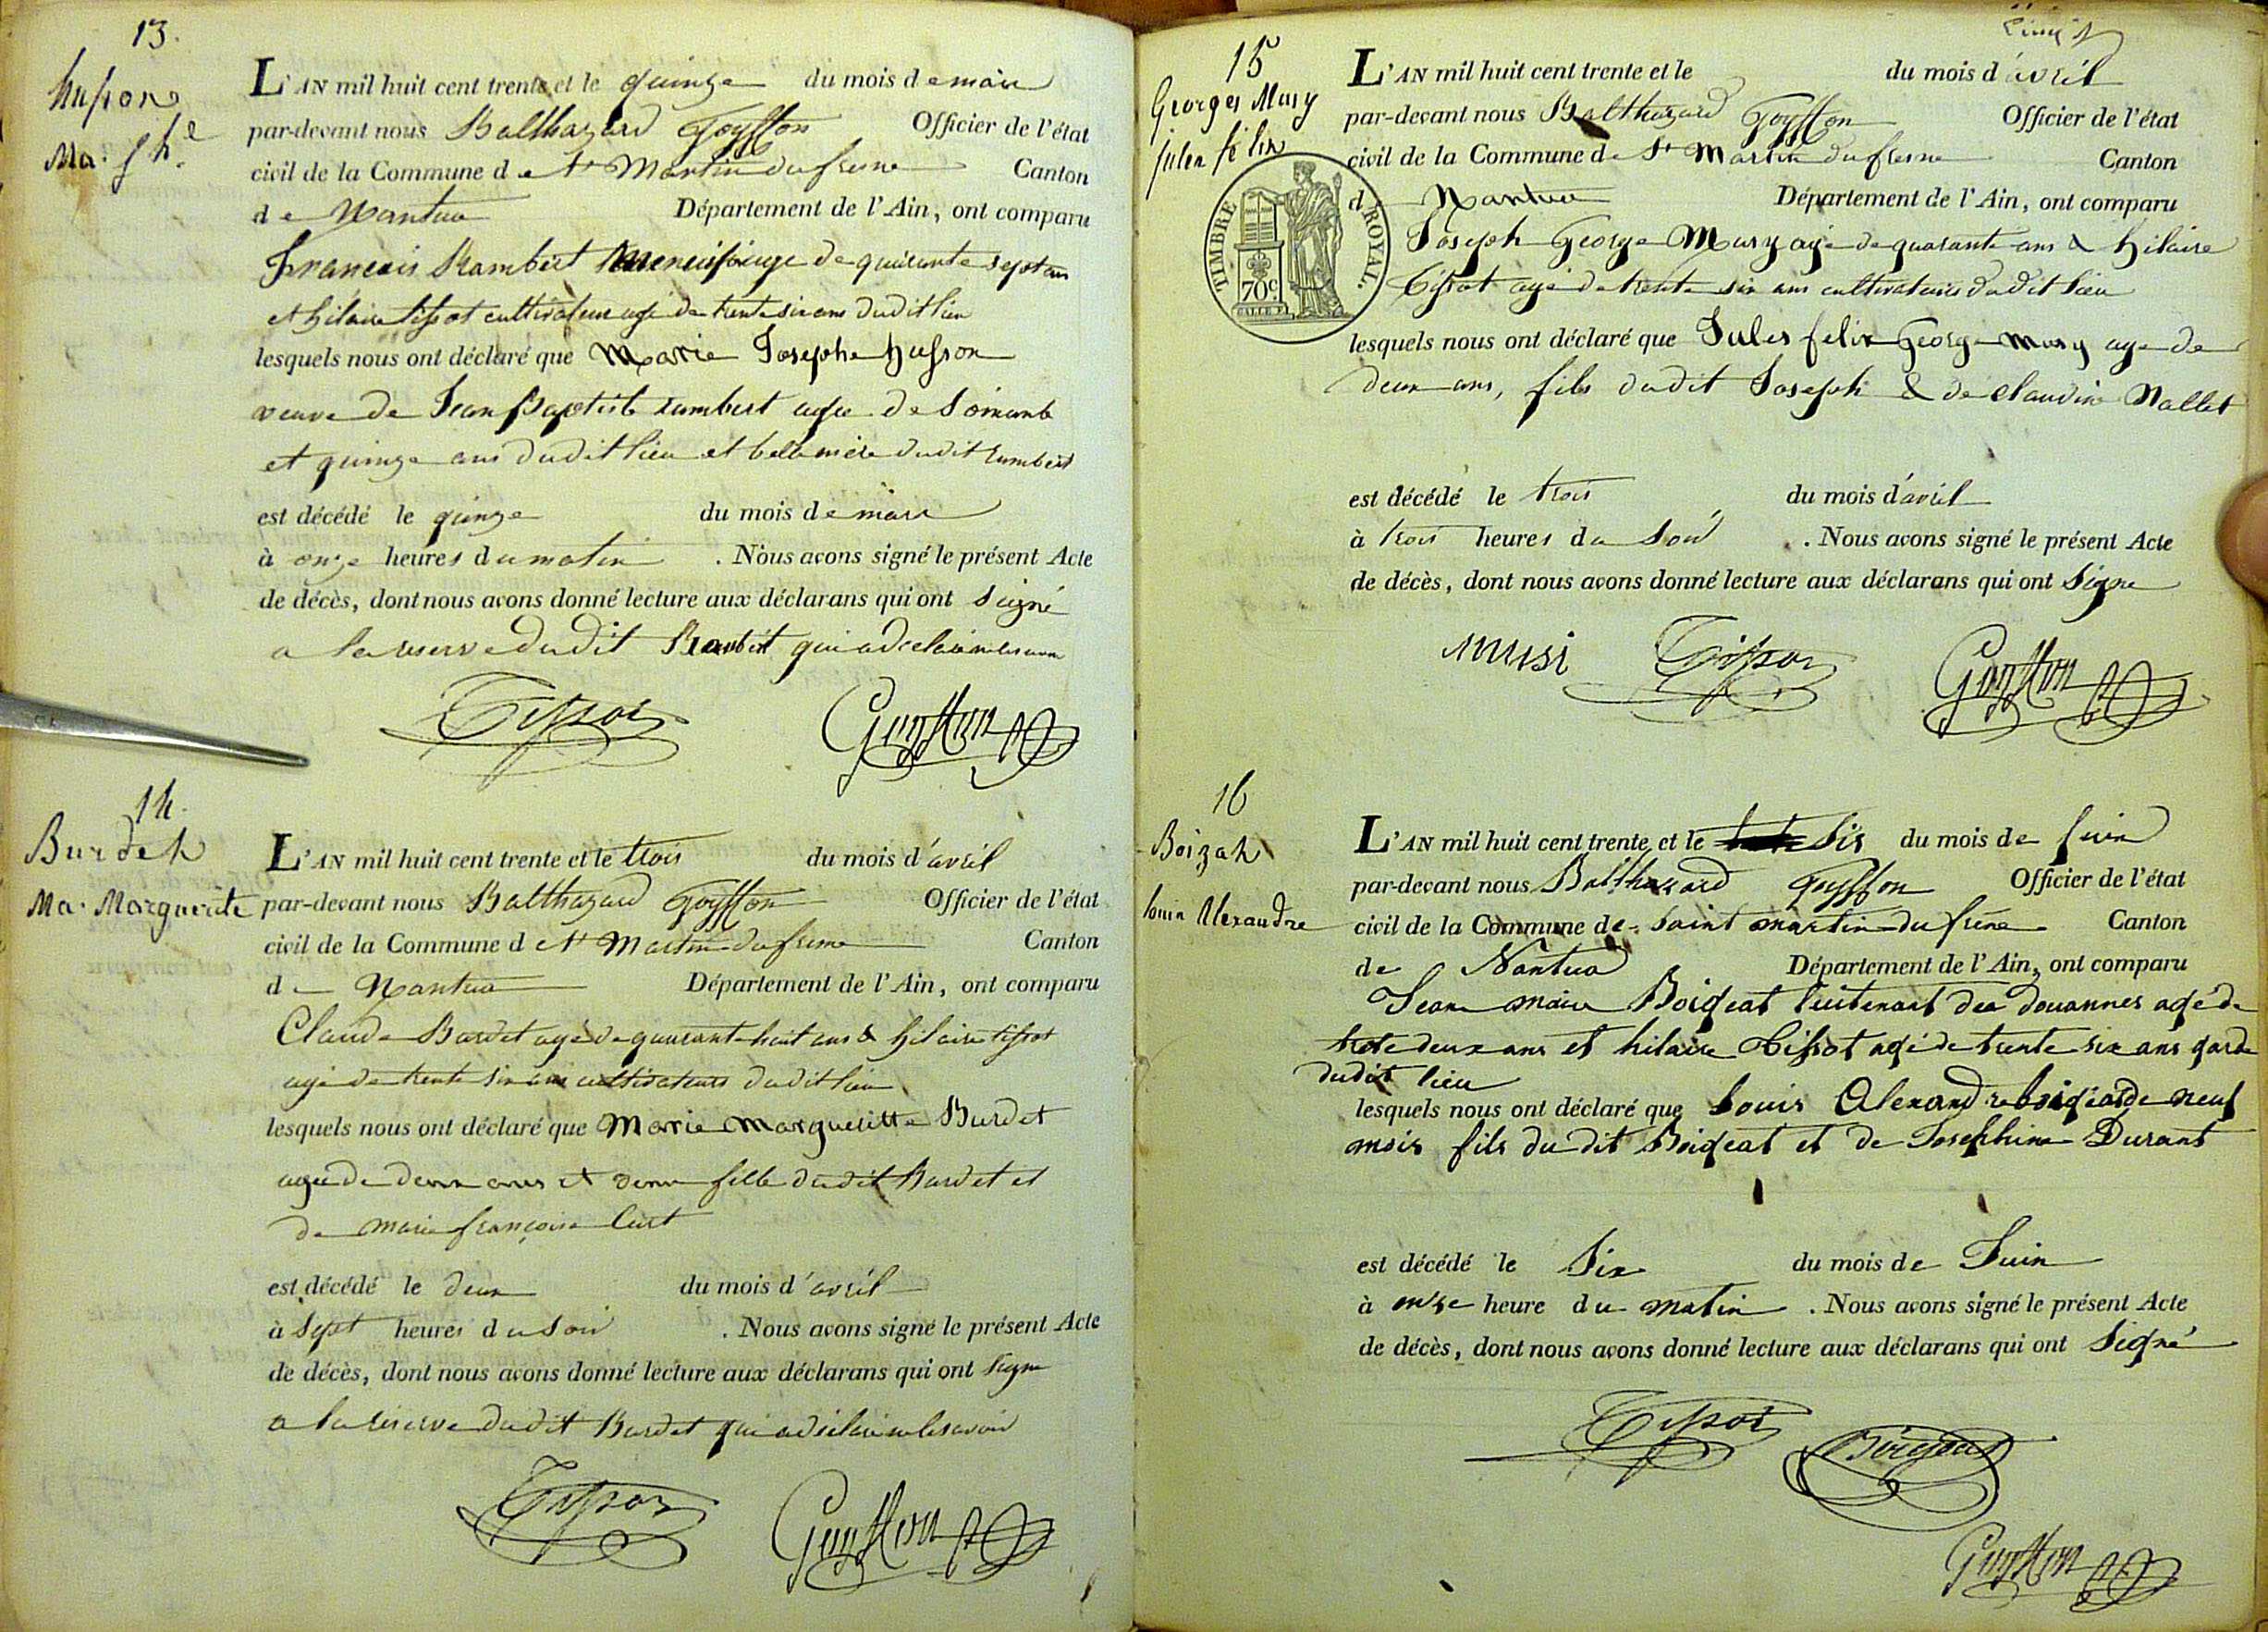 13.
husson
Ma. jhe
L'AN mil huit cent trente et le quinze du mois de mars
par-devant nous Balthazard Goyffon Officier de l'état
civil de la Commune de St Martin du fresne Canton
de Nantua Département de l'Ain, ont comparu
francois Rambert agé de quarante sept ans
et hilaire tissot cultivateur agé de trente six ans dudit lieu
lesquels nous ont déclaré que Marie Josephe husson
veuve de Jean Baptiste rambert agée de Soixante
et quinze ans dudit lieu et belle mère dudit rambert
est décédé le quinze du mois de mars
à onze heures du matin . Nous avons signé le présent Acte
de décès, dont nous avons donné lecture aux déclarans qui ont signé
a la reserve dudit Rambert qui a declaré ne le savoir
Tissot Goyffon
14.
Burdet
Ma. Marguerite
L'AN mil huit cent trente et le trois du mois d'avril
par-devant nous Balthazard Goyffon Officier de l'état
civil de la Commune de St Martin du fresne Canton
d Nantua Département de l'Ain, ont comparu
Claude Burdet agé de quarante huit ans & hilaire tissot
agé de trente six ans cultivateurs dudit lieu
lesquels nous ont déclaré que Marie Margueritte Burdet
agée de deux ans et demi fille dudit Burdet et
de marie françoise Curt
est décédé le deux du mois d'avril
à Sept heures du soir . Nous avons signé le présent Acte
de décès, dont nous avons donné lecture aux déclarans qui ont signé
a la reserve dudit Burdet qui a déclaré ne le savoir
Tissot Goyffon
15
Georges Musy
jules félix
TIMBRE ROYAL.
70c.
L'AN mil huit cent trente et le du mois d'avril
par-devant nous Balthazard Goyffon Officier de l'état
civil de la Commune de St Martin du fresne Canton
d Nantua Département de l'Ain, ont comparu
Joseph George Musy agé de quarante ans & hilaire
Tissot agé de trente six ans cultivateurs dudit lieu
lesquels nous ont déclaré que Jules felix George musy age de
deux ans, fils dudit Joseph & de claudine Mallet
est décédé le trois du mois d'avril
à trois heures du Soir . Nous avons signé le présent Acte
de décès, dont nous avons donné lecture aux déclarans qui ont Signé
musi Tissot Goyffon
16
Boizat
louis Alexandre
L'AN mil huit cent trente et le Six du mois de juin
par-devant nous Balthazard Goyffon Officier de l'état
civil de la Commune de Saint martin du frene Canton
de Nantua Département de l'Ain, ont comparu
Jean marie Boigeat lieutenant des douannes agé de
trete deux ans et hilaire Tissot agé de trente six ans garde
dudit lieu
lesquels nous ont déclaré que Louis Alexandre boigeat de neuf
mois fils du dit Boigeat et de Josephine Durant
est décédé le Six du mois de Juin
à onze heure du matin . Nous avons signé le présent Acte
de décès, dont nous avons donné lecture aux déclarans qui ont Signé
Tissot
Boigeat
Goyffon